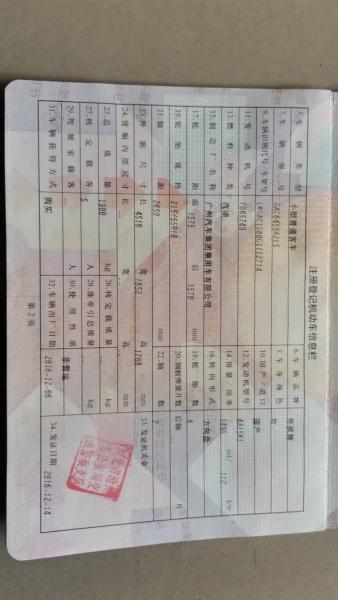 注册登记机动车信息栏
5.车辆类型 小型普通客车 6.车辆品牌 传祺牌
7.车辆型号 8.车身颜色
9.车辆识别代号/车架号 10.国产/进口 国产
11.发动机号 12.发动机型号
13.燃料种类 汽油 14.排量/功率 ml/ kw
15.制造厂名称 广州汽车集团乘用车有限公司 16.转向形式 方向盘
17.轮距 前 1575 后 1579 mm 18.轮胎数 4
19.轮胎规格 215/65R16 20.钢板弹簧片数 后轴 片
21.轴距 2650 mm 22.轴数 2
23.外廓尺寸 长 4510 宽 1852 高 1708 mm 33.发证机关章
24.货厢内部尺寸 长 宽 高 mm
25.总质量 kg 26.核定载质量 kg
27.核定载客 5 人 28.准牵引总质量 kg
29.驾驶室载客 人 30.使用性质 非营运
31.车辆获得方式 购买 32.车辆出厂日期 2016-12-06 34.发证日期 2016-12-14
第2页